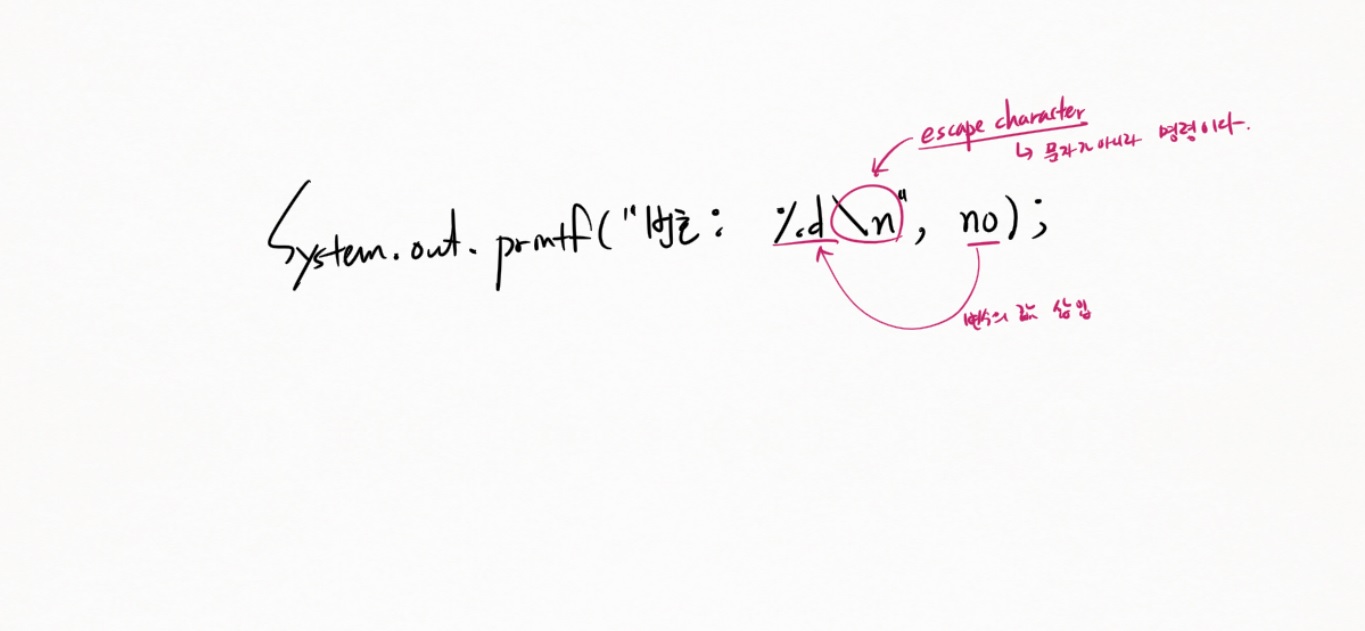 escape character
↳ 문자가 아니라 명령이다.
System.out.printf("번호: %d\n", no);
변수의 값 삽입